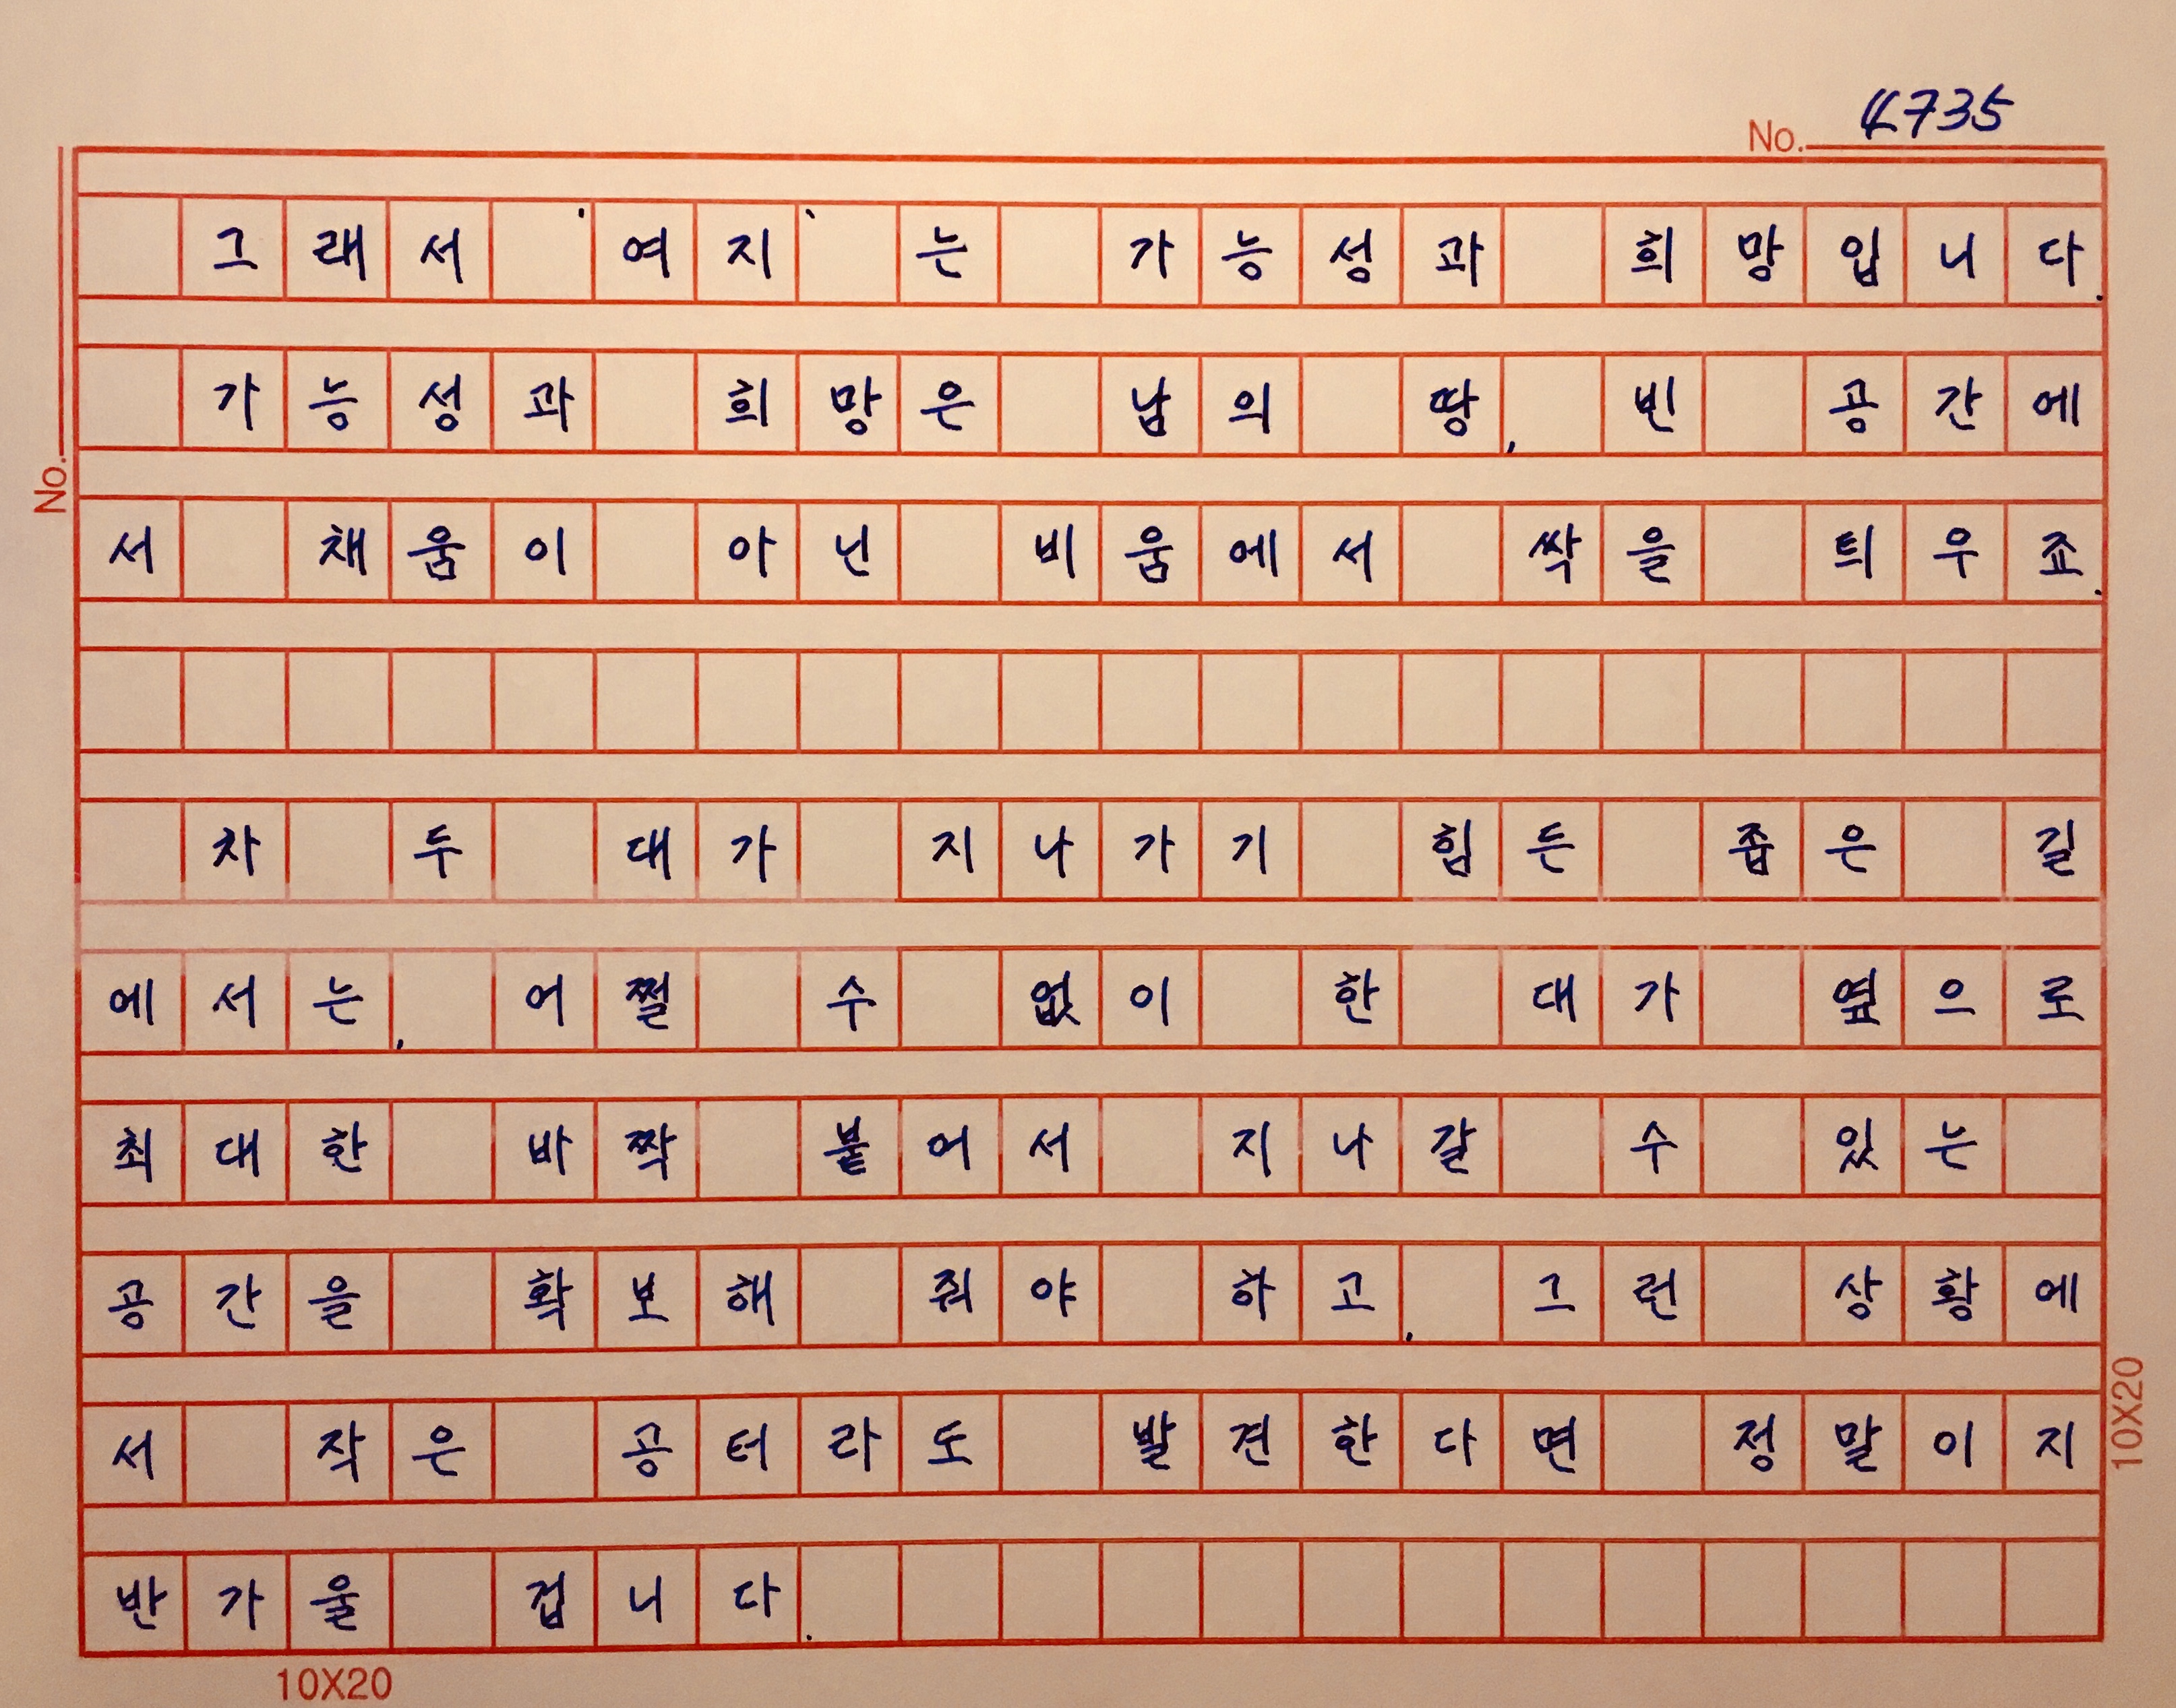 No. 4735
그래서 '여지'는 가능성과 희망입니다.
가능성과 희망은 남의 땅, 빈 공간에
서 채움이 아닌 비움에서 싹을 틔우죠.
차 두 대가 지나가기 힘든 좁은 길
에서는, 어쩔 수 없이 한 대가 옆으로
최대한 바짝 붙어서 지나갈 수 있는
공간을 확보해 줘야 하고, 그런 상황에
서 작은 공터라도 발견한다면 정말이지
반가울 겁니다.
No.
10X20
10X20